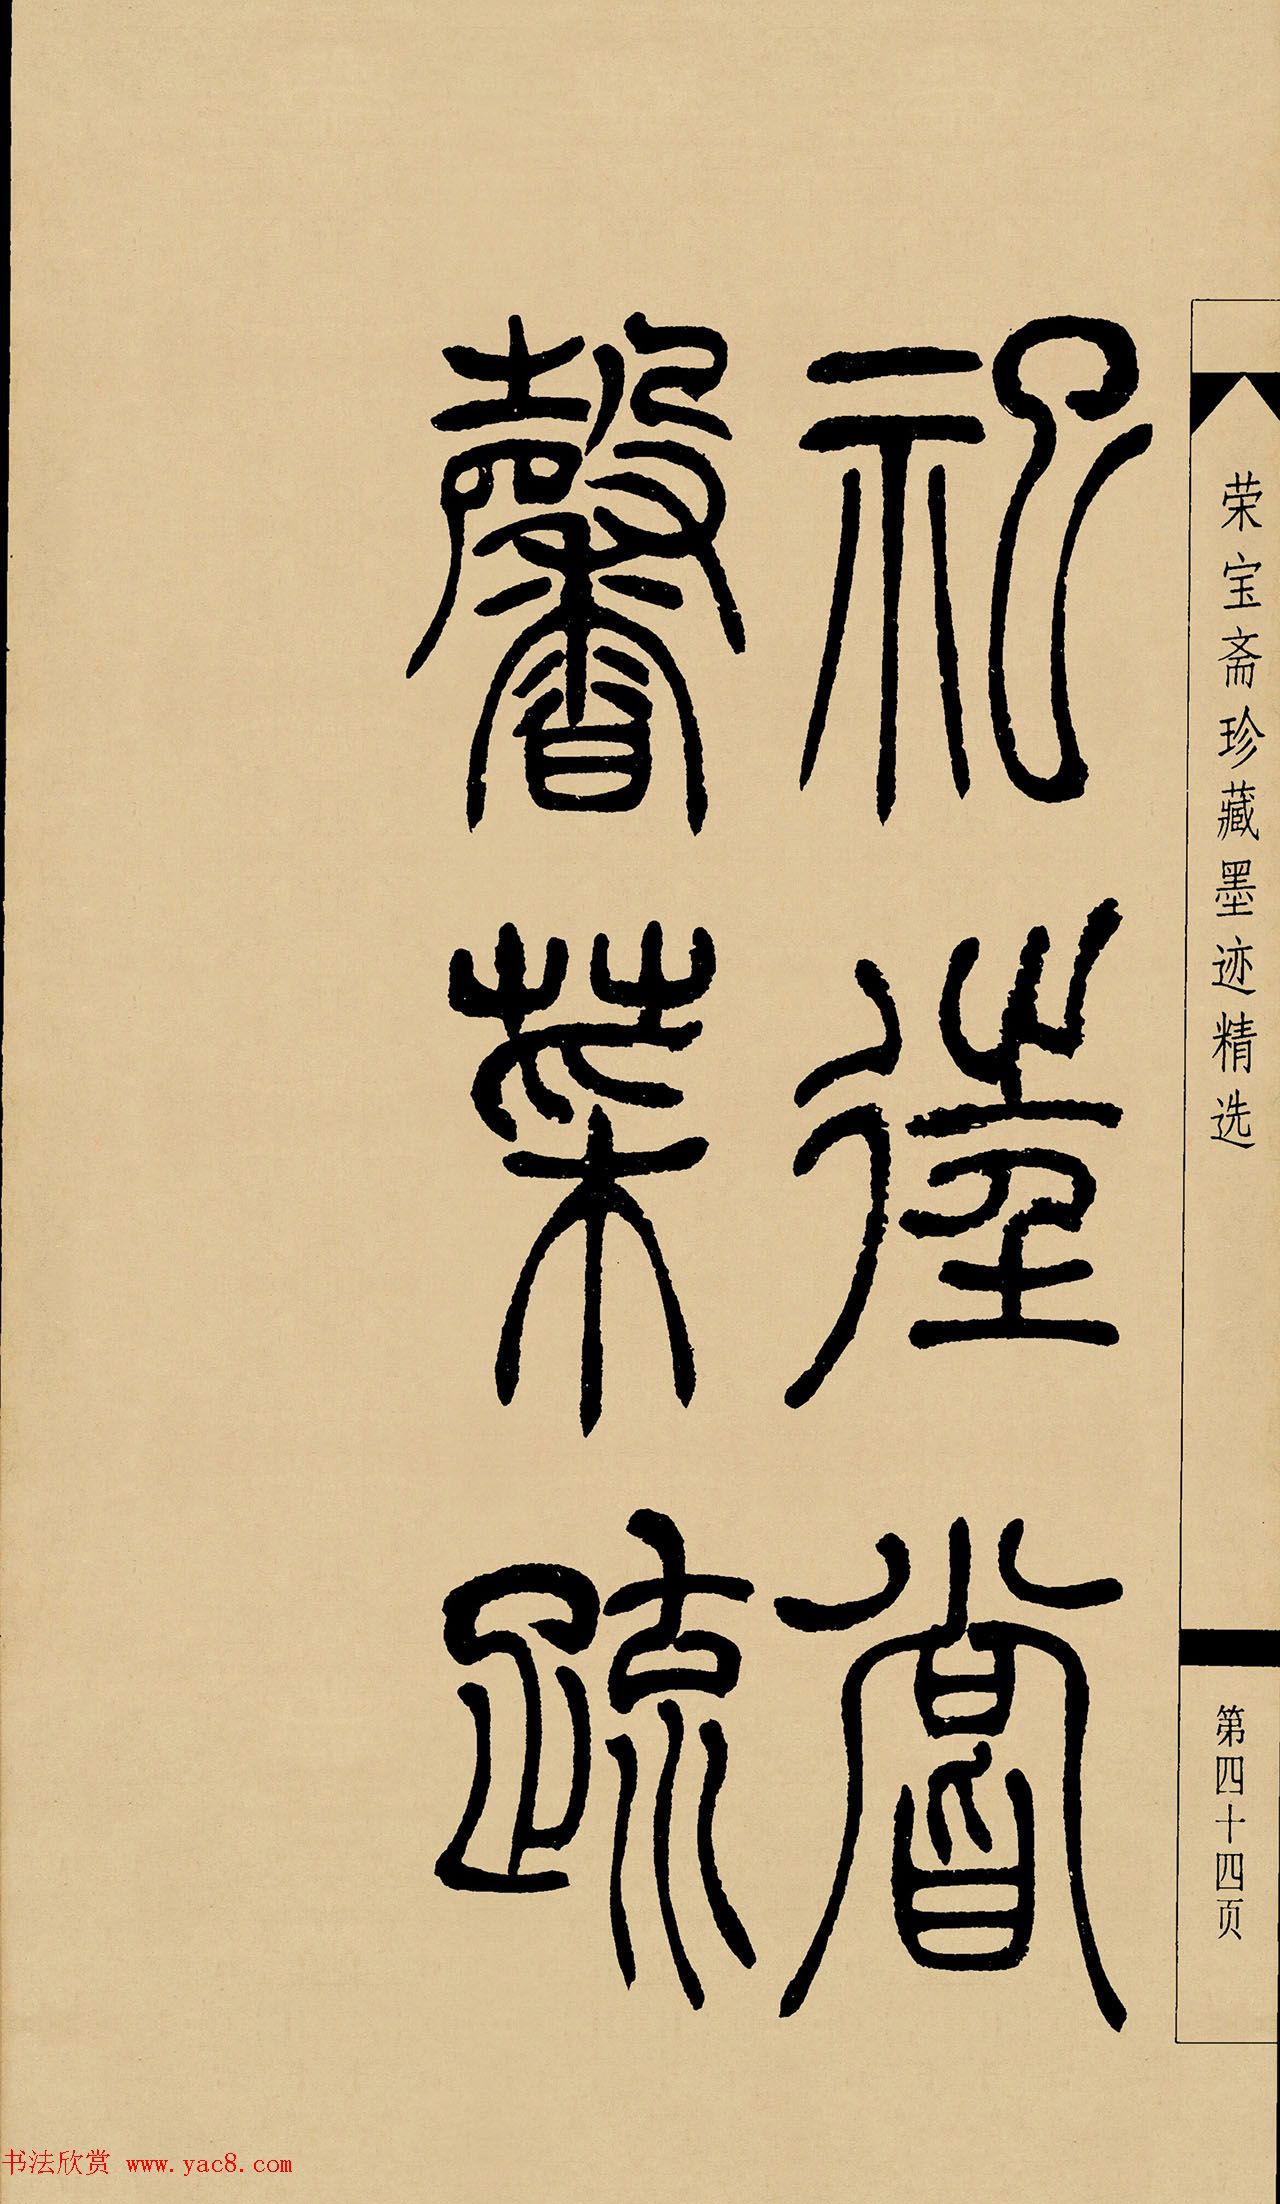 荣宝斋珍藏墨迹精选
第四十四页
祀嘗
馨葉疏
书法欣赏 www.yac8.com